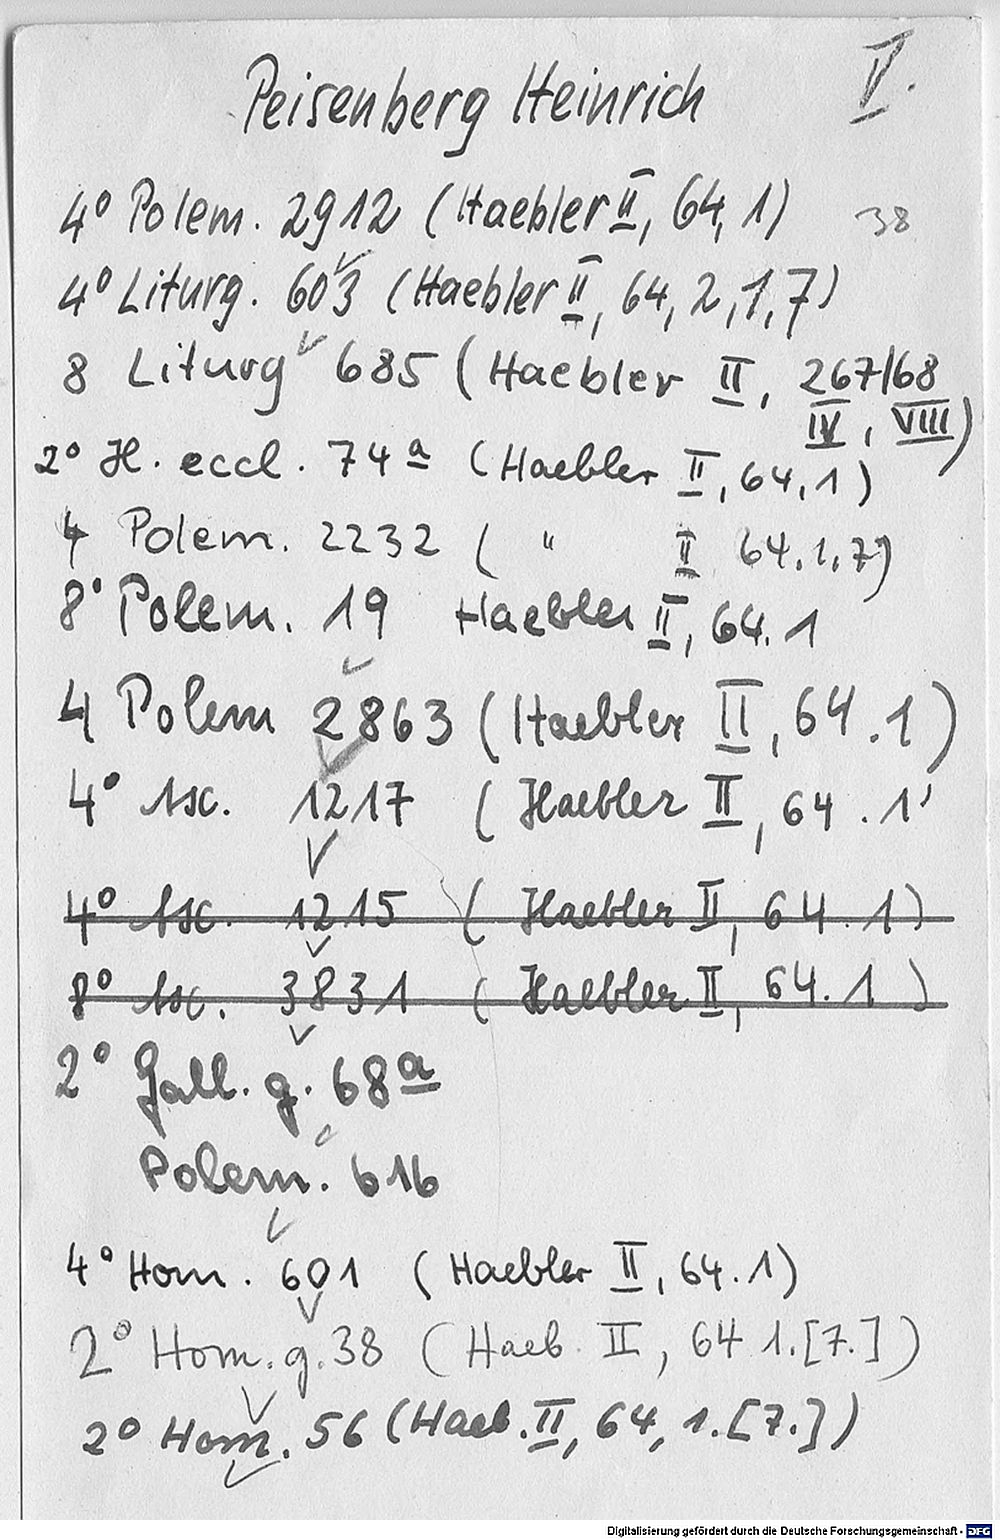 Peisenberg Heinrich V.
4° Polem. 2912 (Haebler II, 64, 1) 38
4° Liturg. 603 (Haebler II, 64, 2, 1, 7)
8 Liturg 685 (Haebler II, 267/68
IV, VIII)
2° H. eccl. 74 a (Haebler II, 64, 1)
4 Polem. 2232 ( " II 64.1.7)
8° Polem. 19 Haebler II, 64. 1
4 Polem 2863 (Haebler II, 64 .1)
4° Asc. 1217 (Haebler II, 64 . 1'
4° Asc. 1215 (Haebler II, 64. 1)
8° Asc. 3831 (Haebler II, 64. 1)
2° Gall. g. 68 a
Polem. 616
4° Hom. 601 (Haebler II, 64. 1)
2° Hom. g. 38 (Haeb. II, 64 1.[7.])
2° Hom. 56 (Haeb. II, 64, 1.[7.])
Digitalisierung gefördert durch die Deutsche Forschungsgemeinschaft - DFG